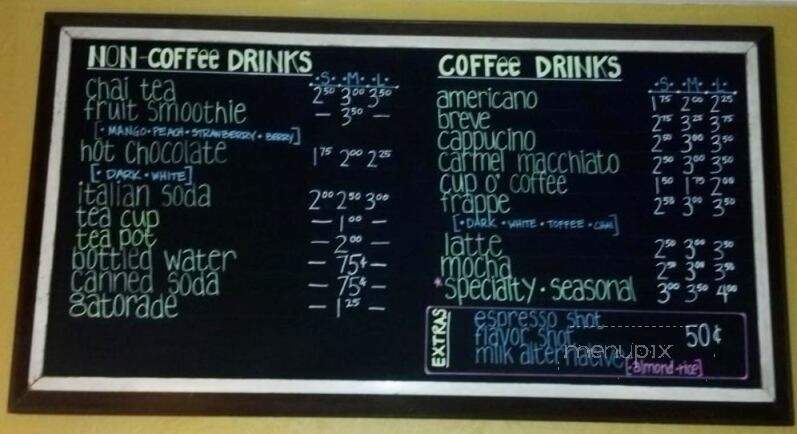 NON-COFFee DRINKS
·S· ·M· ·L·
chai tea 2⁵⁰ 3⁰⁰ 3⁵⁰
fruit smoothie — 3⁵⁰ —
[·MANGO·PEACH·STRAWBERRY·BERRY]
hot chocolate 1⁷⁵ 2⁰⁰ 2²⁵
[·DARK·WHITE]
italian soda 2⁰⁰ 2⁵⁰ 3⁰⁰
tea cup — 1⁰⁰ —
tea pot — 2⁰⁰ —
bottled water — 75¢ —
canned soda — 75¢ —
gatorade — 1²⁵ —
COFFee DRINKS
·S· ·M· ·L·
americano 1⁷⁵ 2⁰⁰ 2²⁵
breve 2⁷⁵ 3²⁵ 3⁷⁵
cappucino 2⁵⁰ 3⁰⁰ 3⁵⁰
carmel macchiato 2⁵⁰ 3⁰⁰ 3⁵⁰
cup o' coffee 1⁵⁰ 1⁷⁵ 2⁰⁰
frappe 2⁵⁰ 3⁰⁰ 3⁵⁰
[·DARK·WHITE·TOFFEE·CHAI]
latte 2⁵⁰ 3⁰⁰ 3⁵⁰
mocha 2⁵⁰ 3⁰⁰ 3⁵⁰
*specialty·seasonal 3⁰⁰ 3⁵⁰ 4⁰⁰
EXTRAS
espresso shot
flavor shot 50¢
milk alternative [·almond·rice]
menupix